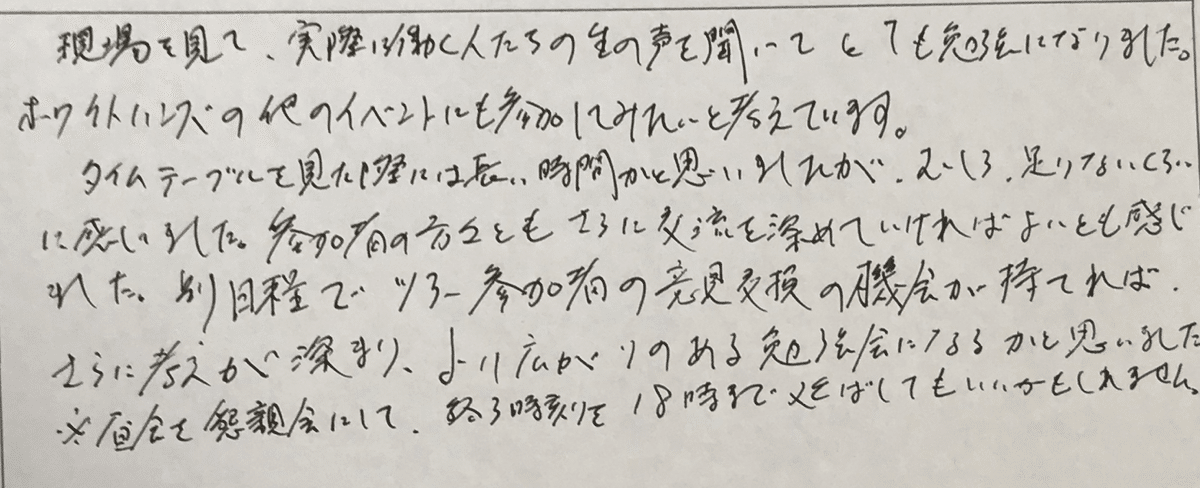 現場を見て、実際に働く人たちの生の声を聞いてとても勉強になりました。
ホワイトハンズの他のイベントにも参加してみたいと考えています。
タイムテーブルを見た際には長い時間かと思いましたが、むしろ、足りないくらい
に感じました。参加者の方々ともさらに交流を深めていければよいとも感じ
ました。別日程でツアー参加者の意見交換の機会が持てれば、
さらに考えが深まり、より広がりのある勉強会になるかと思いました
※昼食を懇親会にして、終了時刻を18時までのばしてもいいかもしれません。